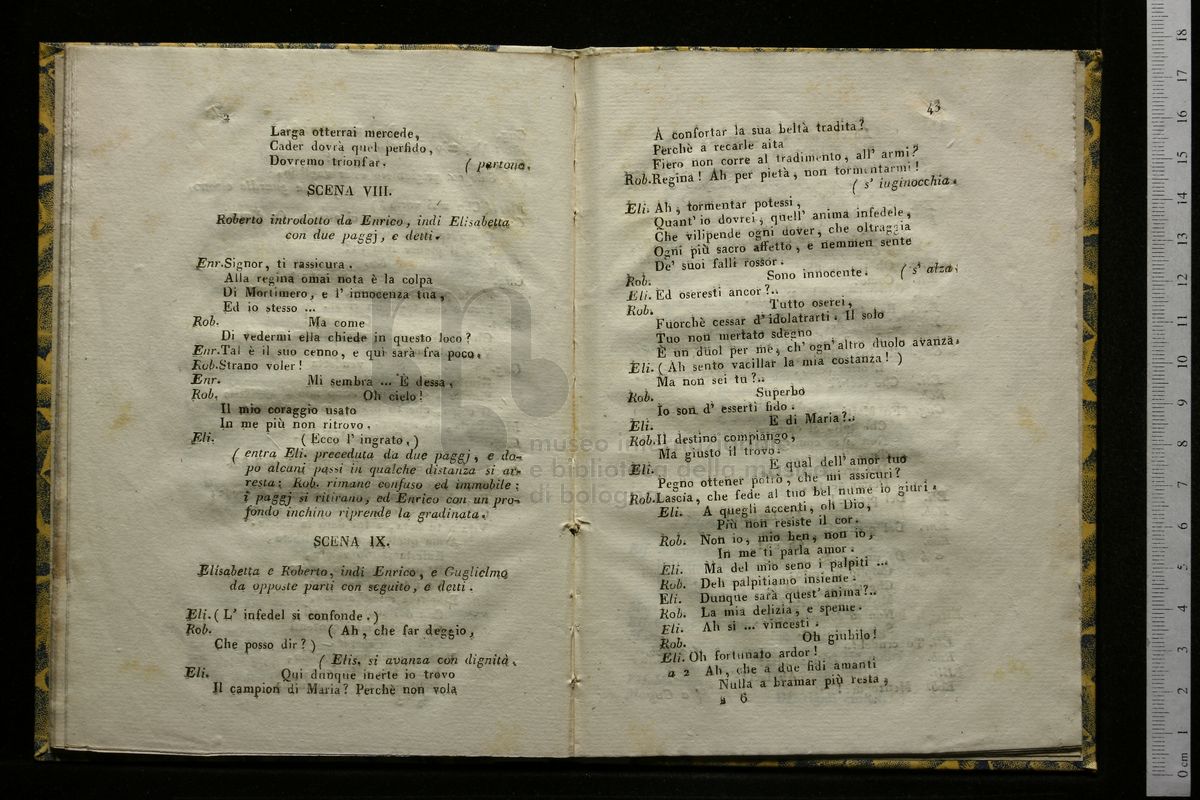 2
Larga otterrai mercede,
Cader dovrà quel perfido,
Dovremo trionfar. ( partono.
SCENA VIII.
Roberto introdotto da Enrico, indi Elisabetta
con due paggj, e detti.
Enr. Signor, ti rassicura.
Alla regina omai nota è la colpa
Di Mortimero, e l' innocenza tua,
Ed io stesso ...
Rob. Ma come
Di vedermi ella chiede in questo loco?
Enr. Tal è il suo cenno, e qui sarà fra poco.
Rob. Strano voler!
Enr. Mi sembra ... È dessa,
Rob. Oh cielo!
Il mio coraggio usato
In me più non ritrovo.
Eli. ( Ecco l' ingrato. )
( entra Eli. preceduta da due paggj, e do-
po alcuni passi in qualche distanza si ar-
resta: Rob. rimane confuso ed immobile:
i paggj si ritirano, ed Enrico con un pro-
fondo inchino riprende la gradinata.
SCENA IX.
Elisabetta e Roberto, indi Enrico, e Guglielmo
da opposte parti con seguito, e detti.
Eli. ( L' infedel si confonde. )
Rob. ( Ah, che far deggio,
Che posso dir? )
( Elis. si avanza con dignità.
Eli. Qui dunque inerte io trovo
Il campion di Maria? Perchè non vola
43
A confortar la sua beltà tradita?
Perchè a recarle aita
Fiero non corre al tradimento, all' armi?
Rob. Regina! Ah per pietà, non tormentarmi!
( s' iuginocchia.
Eli. Ah, tormentar potessi,
Quant' io dovrei, quell' anima infedele,
Che vilipende ogni dover, che oltraggia
Ogni più sacro affetto, e nemmen sente
De' suoi falli rossor.
Rob. Sono innocente. ( s' alza.
Eli. Ed oseresti ancor?..
Rob. Tutto oserei,
Fuorchè cessar d' idolatrarti. Il solo
Tuo non mertato sdegno
È un duol per me, ch' ogn' altro duolo avanza.
Eli. ( Ah sento vacillar la mia costanza! )
Ma non sei tu?..
Rob. Superbo
Io son d' esserti fido.
Eli. E di Maria?..
Rob. Il destino compiango,
Ma giusto il trovo.
Eli. E qual dell' amor tuo
Pegno ottener potrò, che mi assicuri?
Rob. Lascia, che fede al tuo bel nume io giuri.
Eli. A quegli accenti, oh Dio,
Più non resiste il cor.
Rob. Non io, mio ben, non io,
In me ti parla amor.
Eli. Ma del mio seno i palpiti ...
Rob. Deh palpitiamo insieme.
Eli. Dunque sarà quest' anima?..
Rob. La mia delizia, e speme.
Eli. Ah si ... vincesti.
Rob. Oh giubilo!
Eli. Oh fortunato ardor!
a 2 Ah, che a due fidi amanti
Nulla a bramar più resta,
a 6
museo in
e biblioteca della musica
di bologna
0 cm 1 2 3 4 5 6 7 8 9 10 11 12 13 14 15 16 17 18